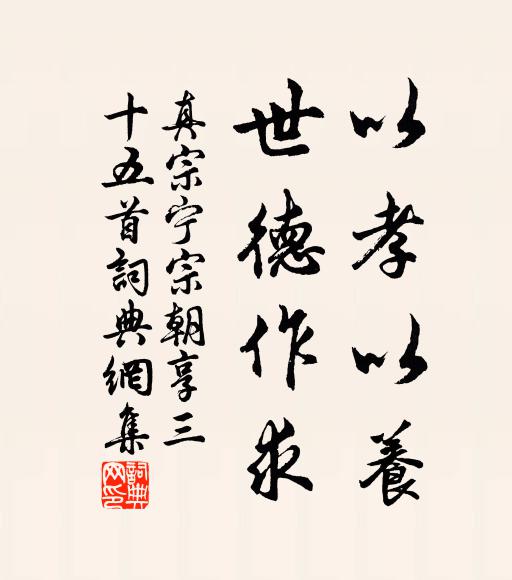 以孝以養
世德作求
真宗宁宗朝享三
十五首詞典網集
詞典
网印